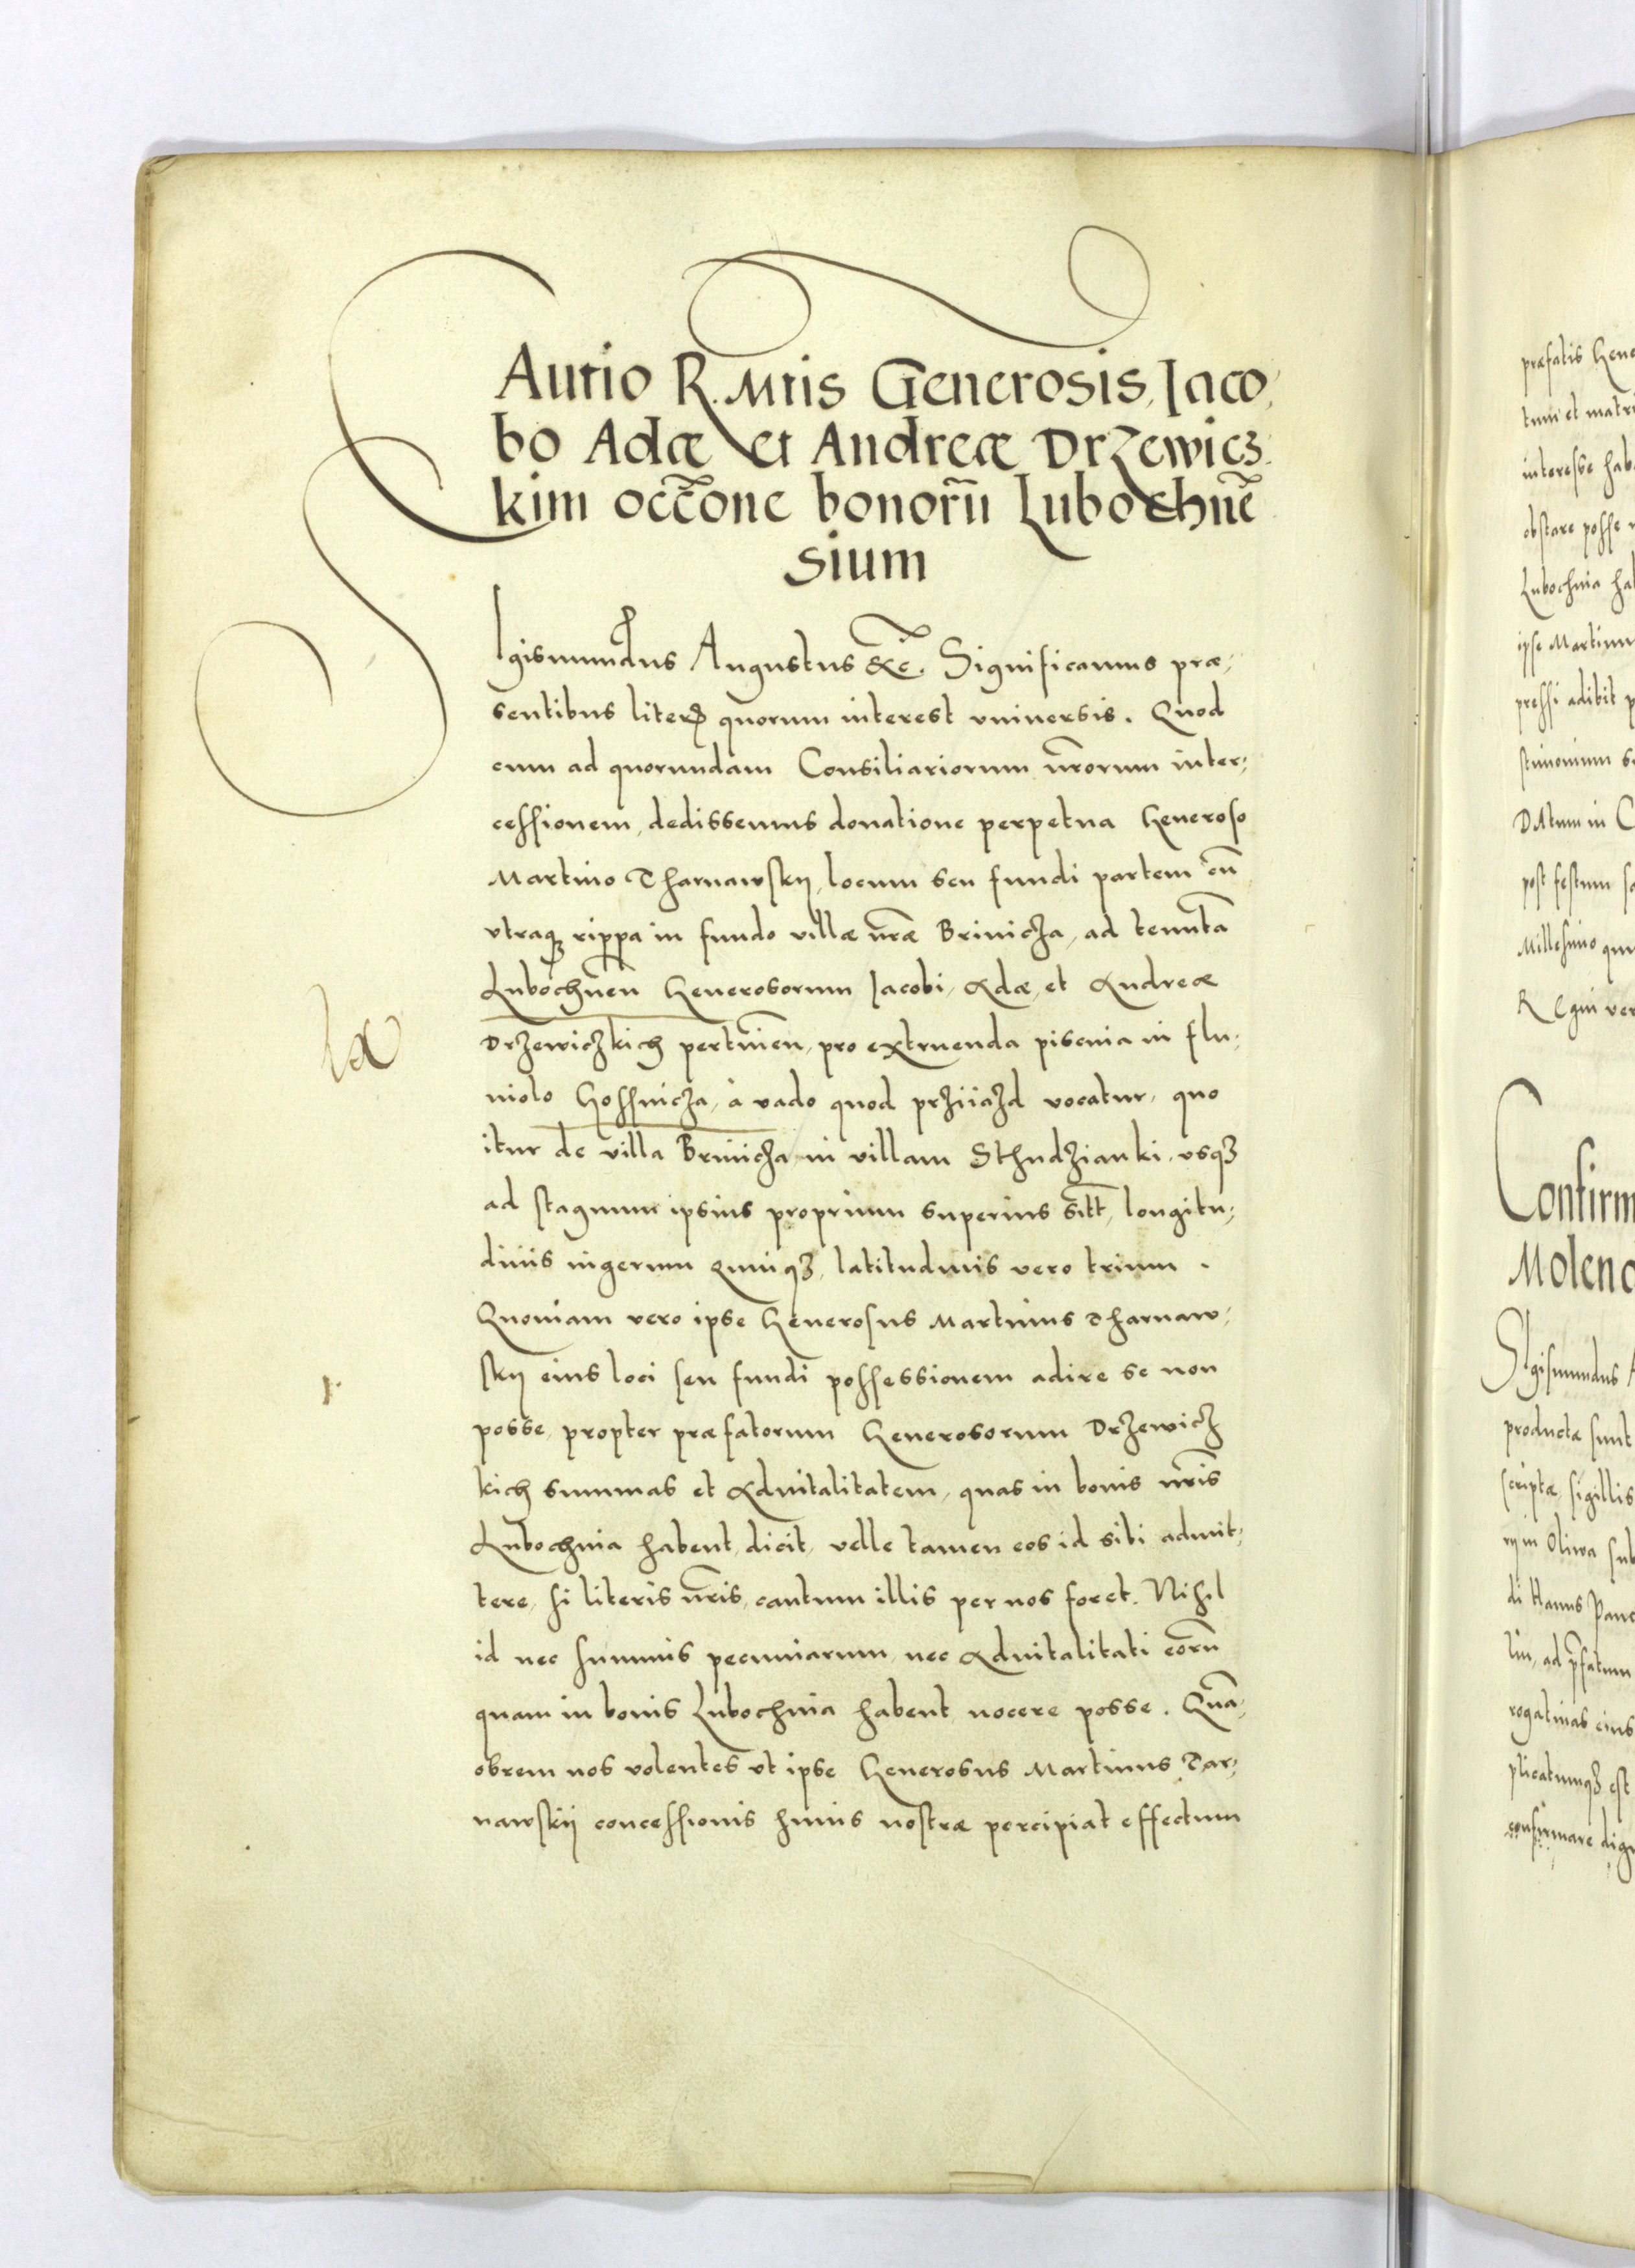 Cautio R. Mtis Generosis, Iaco,
bo Adæ et Andreæ Drzewicz,
kim occ̃one bonorũ Lubochnẽ
sium
SIgismundus Augustus &c̃. Significamus præ,
sentibus literꝭ quorum interest vniuersis. Quod
cum ad quorundam Consiliariorum nr̃orum inter,
cessionem, dedissemus donatione perpetua Generoso
Martino Tharnawskij, locum seu fundi partem cũ
vtraqꝫ rippa in fundo villæ nr̃æ Brinicza, ad tenutã
Lubochneñ Generosorum Iacobi, Adæ, et Andreæ
Drzewiczkich pertineñ, pro extruenda piscina in flu,
uiolo Gossnicza, à vado quod prziiazd vocatur, quo
itur de villa Brinicza in villam Sthudzianki, vsqꝫ
ad stagnum ipsius proprium superius sitt̃, longitu,
dinis iugerum Quinqꝫ, latitudinis vero trium.
Quoniam vero ipse Generosus Martinus Tharnaw,
skij eius loci seu fundi possessionem adire se non
posse, propter præfatorum Generosorum Drzewicz
kich summas et Aduitalitatem, quas in bonis nr̃is
Lubochnia habent, dicit, velle tamen eos id sibi admit,
tere, si literis nr̃is, cautum illis per nos foret. Nihil
id nec summis pecuniarum, nec Aduitalitati eorũ
quam in bonis Lubochnia habent nocere posse. Quã,
obrem nos volentes vt ipse Generosus Martinus Tar,
nawskij concessionis huius nostræ percipiat effectum
præfatis Gene
tum et matri
interesse hab
obstare posse
Lubochnia ha
ipse Martinu
pressi adibit
stimonium
DAtum in C
post festum
Millesimo qui
REgni ver
Confirm
Moleno
SIgismundus A
producta sunt
scriptæ, sigillis
rij in Oliwa sub
di Hanus Pan
lin, ad p̃fatum
rogatiuas eius
plicatumqꝫ est
confirmare dig